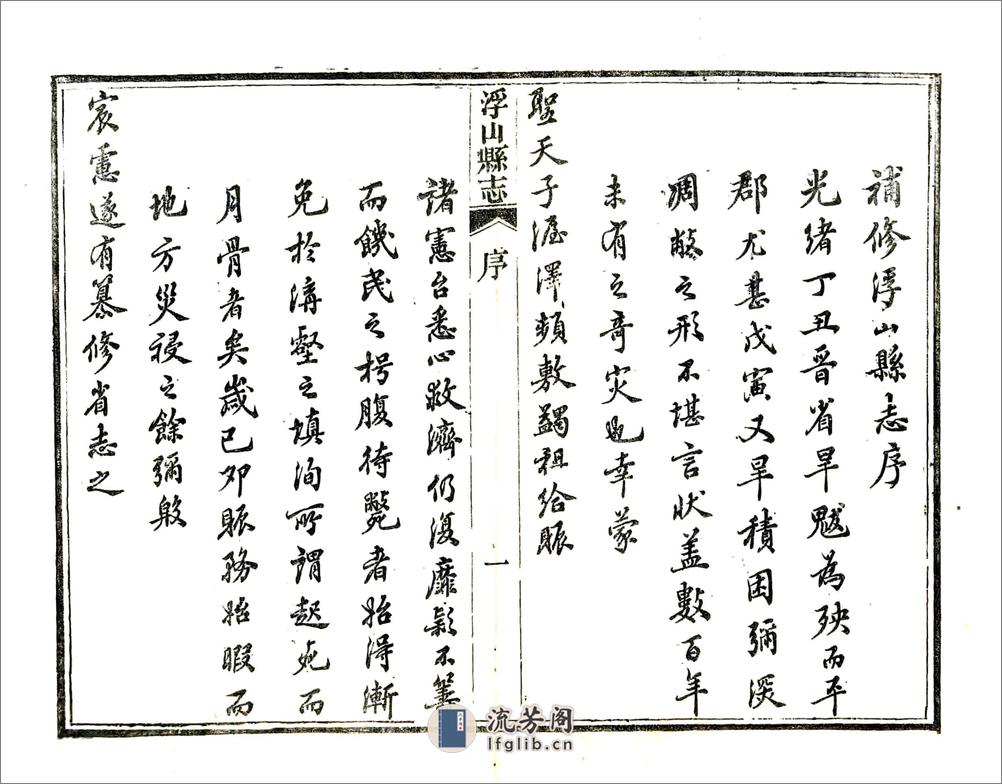 補修浮山縣志序
光緒丁丑晉省旱魃為殃而平
郡尤甚戊寅又旱積困彌深
凋敝之形不堪言狀蓋數百年
未有之竒灾也幸蒙
聖天子渥澤頻敷蠲租給賑
浮山縣志
序
一
諸憲台悉心救濟仍復靡款不籌
而饑民之枵腹待斃者始得漸
免於溝壑之填洵所謂起死而
月骨者矣歲己卯賑務始暇而
地方災祲之餘彌殷
宸慮遂有纂修省志之
流芳阁
lfglib.cn